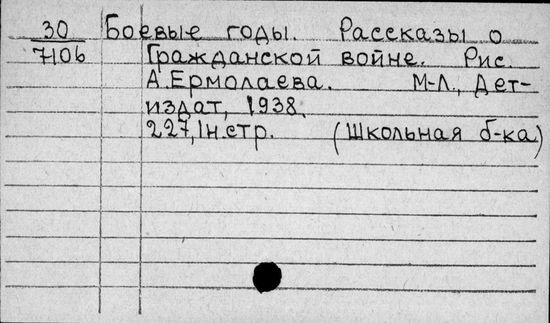 30 Боевые годы. Рассказы о
7106 Гражданской войне. Рис.
А.Ермолаева. М-Л., Дет-
издат, 1938.
227,1н.стр. (Школьная б-ка)